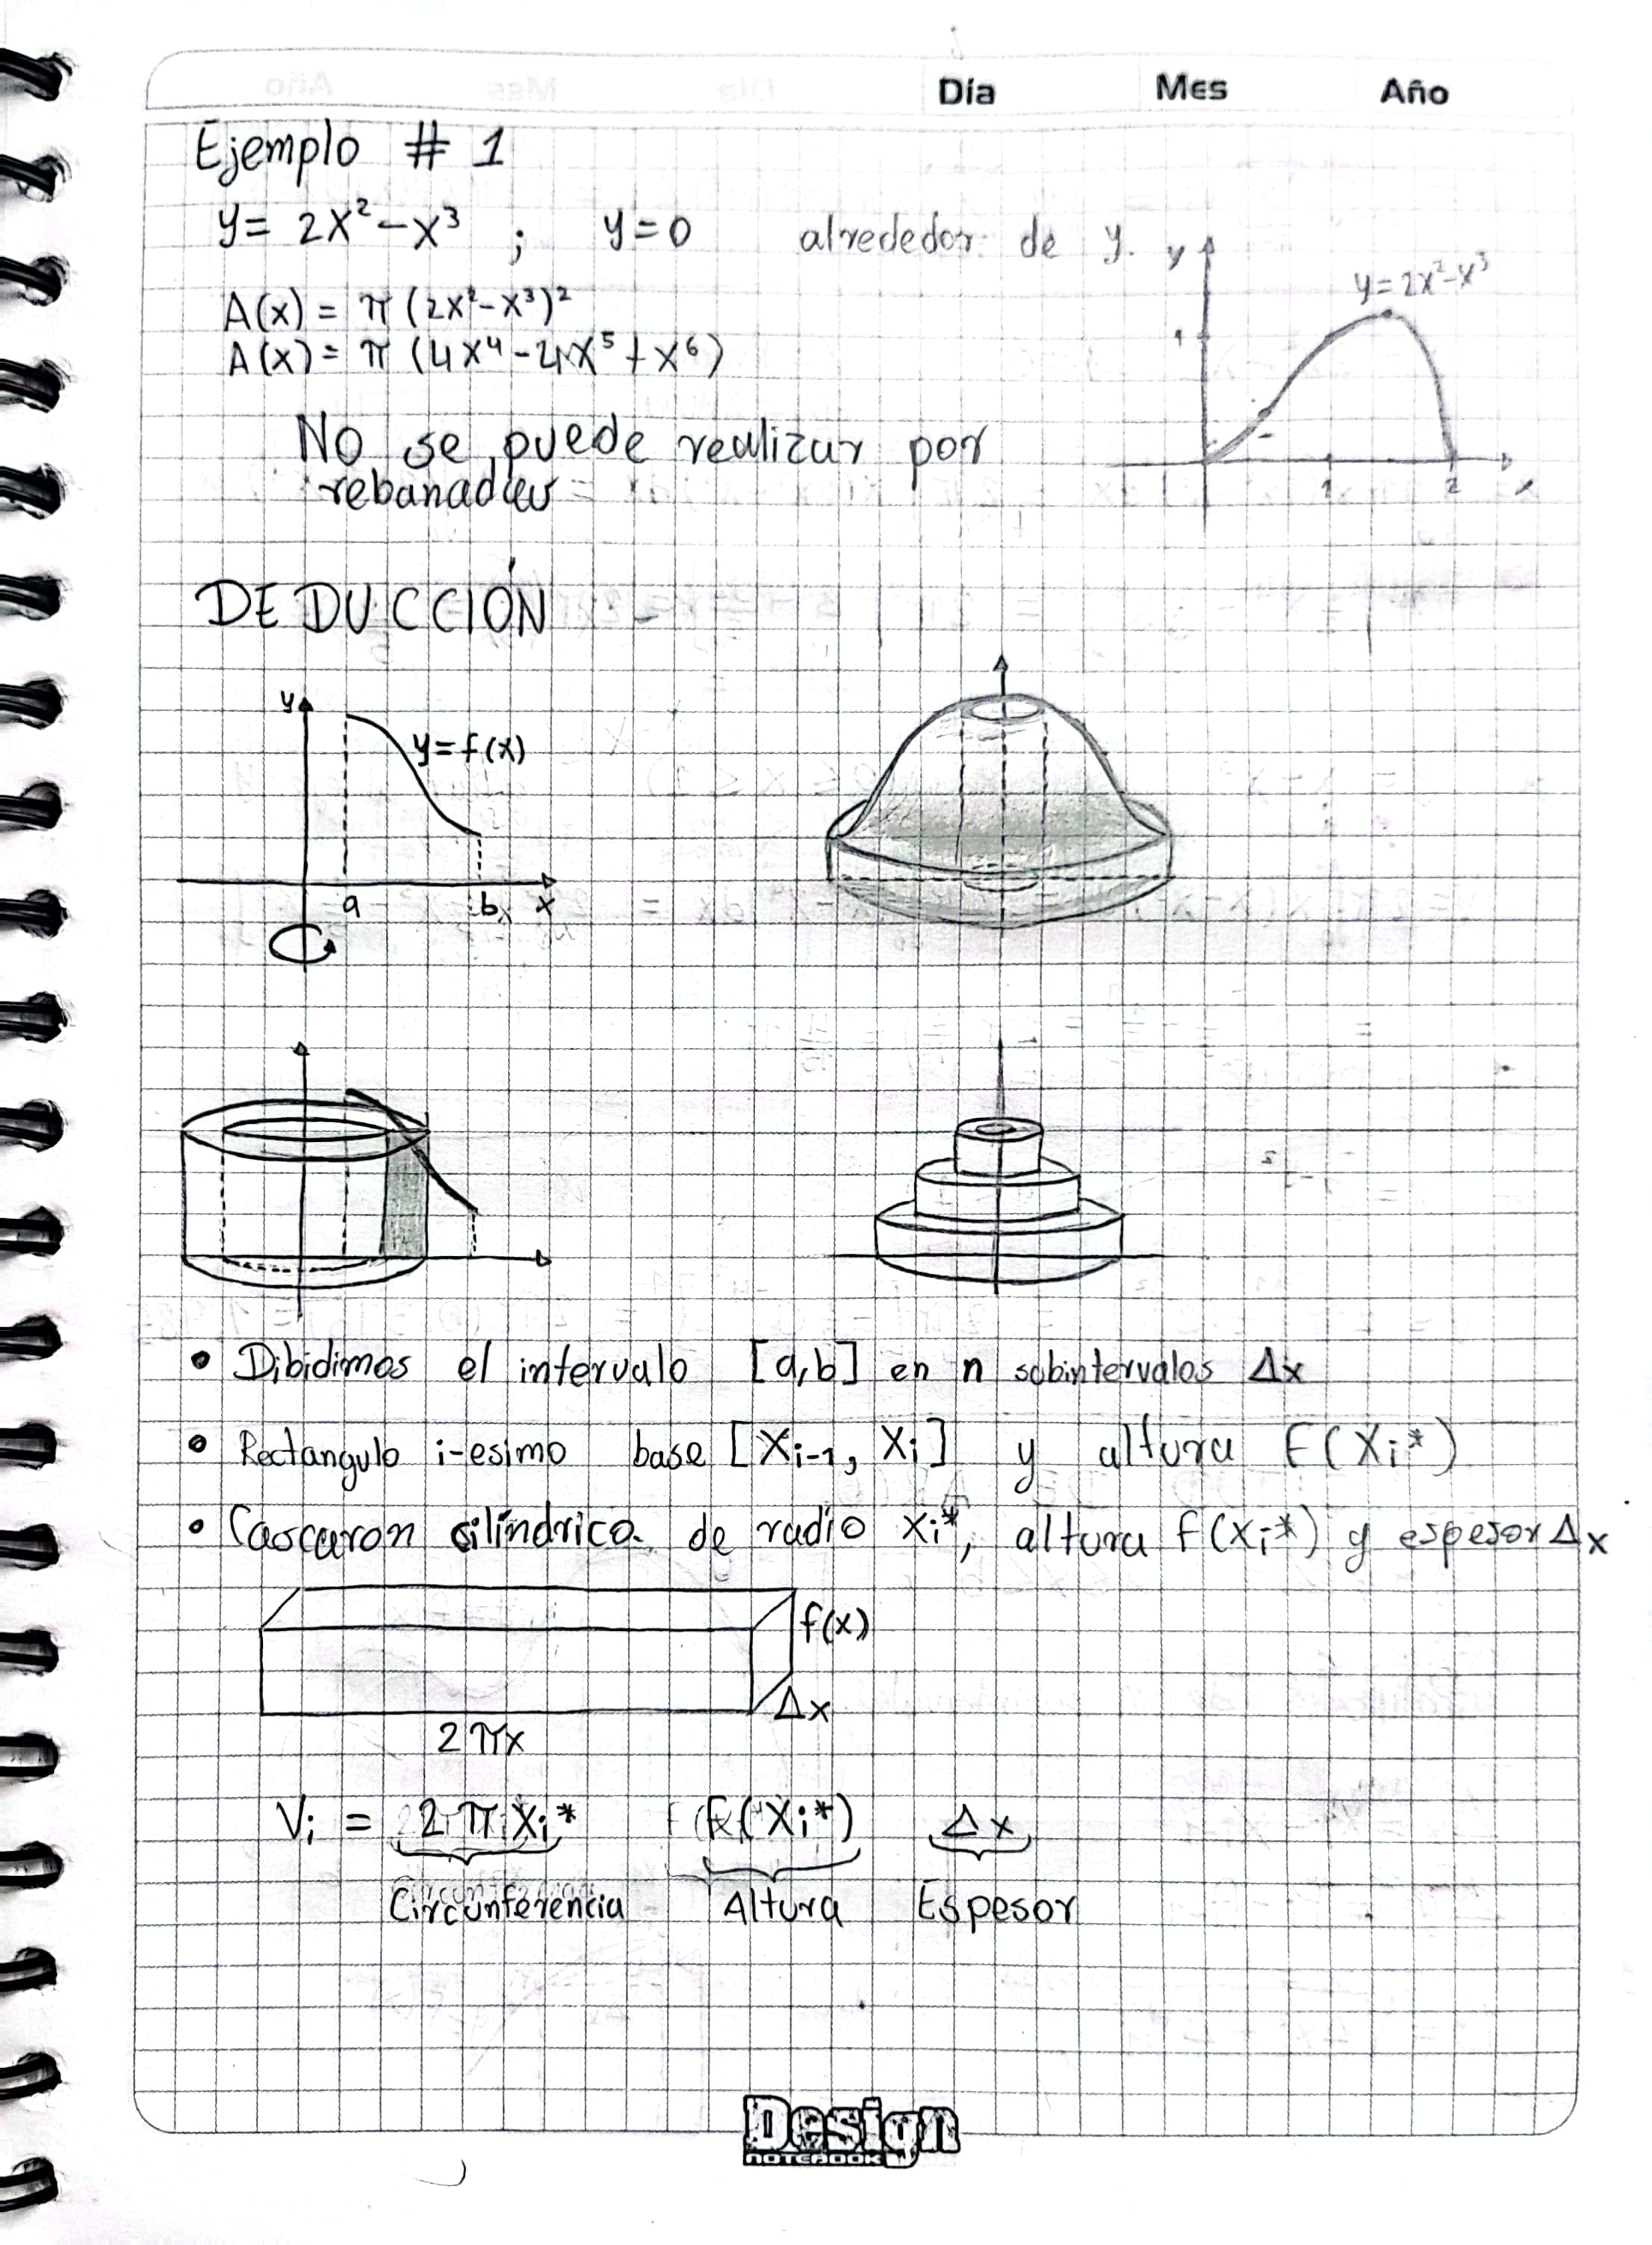 Día Mes Año
Ejemplo # 1
y = 2x² - x³ ; y = 0 alrededor de y.
y
y = 2x² - x³
A(x) = π (2x² - x³)²
1
A(x) = π (4x⁴ - 4x⁵ + x⁶)
No se puede realizar por
rebanadas
1 2 x
DEDUCCIÓN
y
y = f(x)
a b x
• Dibidimos el intervalo [a,b] en n subintervalos Δx
• Rectangulo i-esimo base [Xi-1, Xi] y altura F(Xi*)
• Cascaron cilíndrico de radio Xi*, altura f(Xi*) y espesor Δx
f(x)
Δx
2πx
Vi = 2πXi* F(Xi*) Δx
Circunferencia Altura Espesor
Design
NOTEBOOK